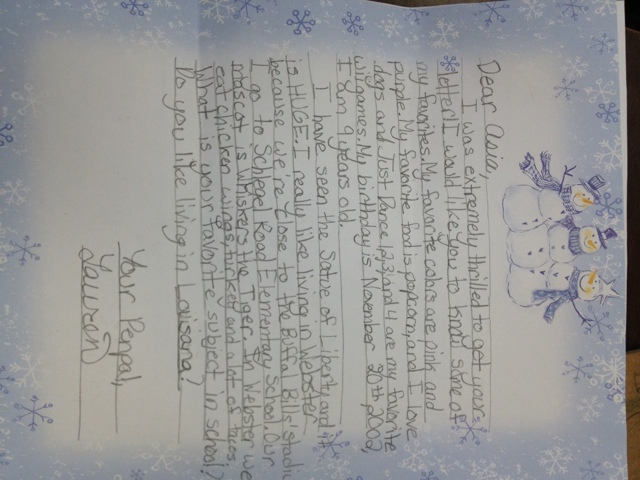 Dear Asia,
I was extremely thrilled to get yours
letter! I would like you to know some of
my favorites. My favorite colors are pink and
purple. My favorite food is popcorn, and I love
dogs and Just Dance 1,2,3, and 4 are my favorite
wiigames. My birthday is November 20th, 2002,
I am 9 years old.
I have seen the Satue of Liberty and it
is HUGE. I really like living in Webster
because we're close to the Buffal Bills stadiu
I go to Schlegel Road Elementary School. Our
mascot is Whiskers the Tiger. In Webster we
eat chicken wings, turkey and a lot of tacos
What is your favorite subject in school?
Do you like living in Louisana?
Your Penpal,
Lauren